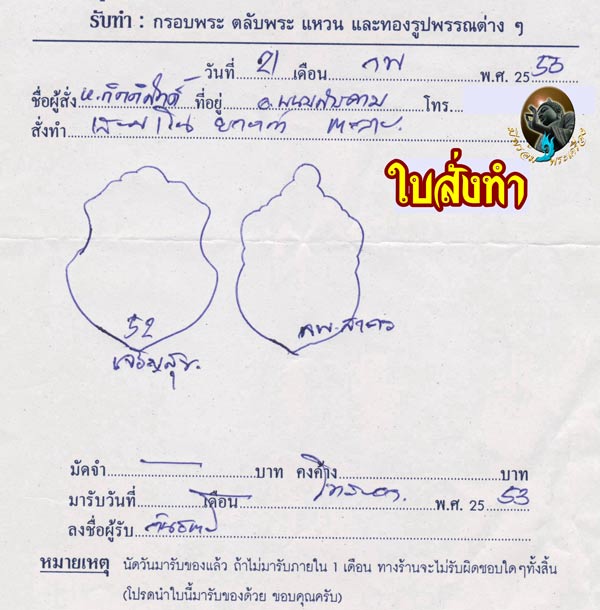 รับทำ : กรอบพระ ตลับพระ แหวน และทองรูปพรรณต่าง ๆ
วันที่ 21 เดือน กพ พ.ศ. 2553
ชื่อผู้สั่ง ห.กิตติศักดิ์ ที่อยู่ อ.พนมสารคาม โทร.
สั่งทำ
ใบสั่งทำ
52
เจริญสุข.
ลพ.สาคร
มัดจำ บาท คงค้าง บาท
มารับวันที่ เดือน พ.ศ. 2553
ลงชื่อผู้รับ
หมายเหตุ นัดวันมารับของแล้ว ถ้าไม่มารับภายใน 1 เดือน ทางร้านจะไม่รับผิดชอบใดๆทั้งสิ้น
(โปรดนำใบนี้มารับของด้วย ขอบคุณครับ)